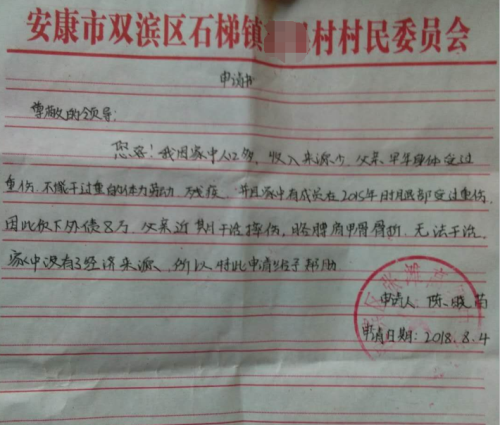 安康市双滨区石梯镇 村村民委员会
申请书
尊敬的领导:
您好!我因家中人口多,收入来源少.父亲早年身体受过
重伤.不能干过重的体力劳动 残疾.并且家中有成员在2015年 部受过重伤.
因此欠下外债8万.父亲近期干活摔伤,胳膊肩甲骨骨断,无法干活.
家中没有了经济来源.所以特此申请给予帮助
申请人:陈 苗
申请日期:2018.8.4